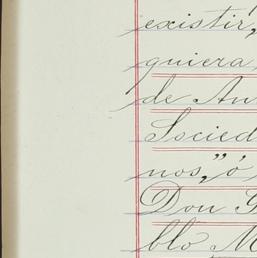 existir,
quiera
de An
Socied
nos,” ó
Don G
blo M